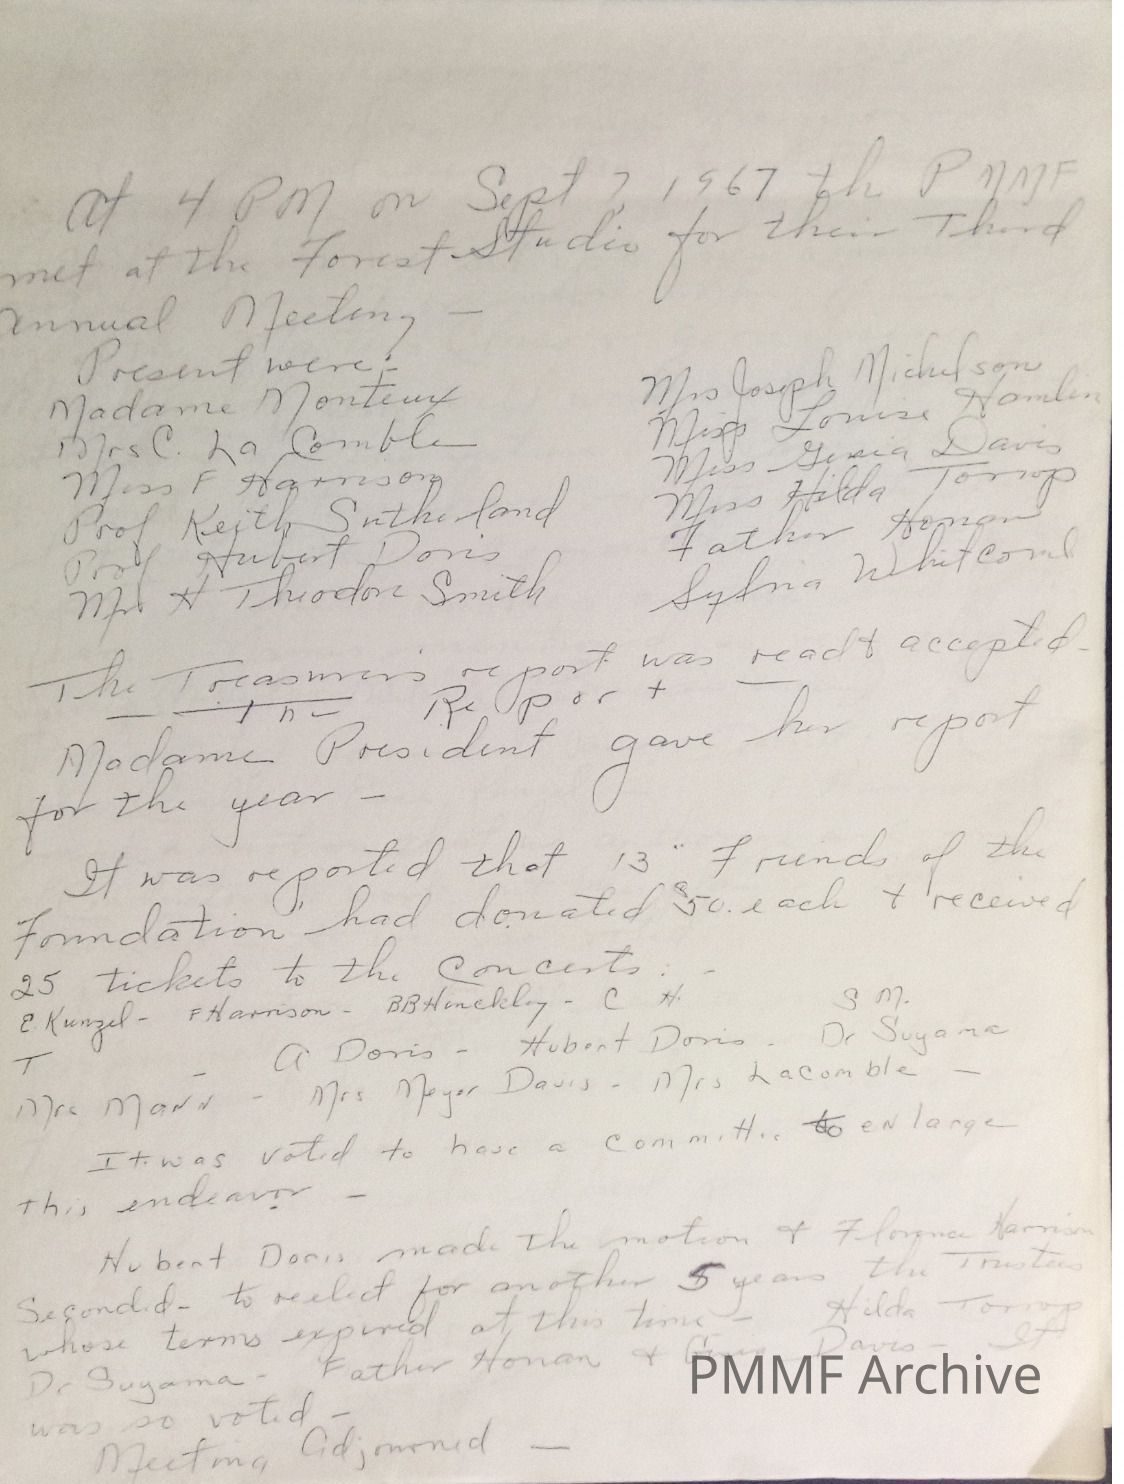 At 4 PM on Sept 7, 1967 th PMMF
met at the Forest Studio for their Third
Annual Meeting —
Present were:
Madame Monteux
Mrs C. La Comble
Miss F Harrison
Prof Keith Sutherland
Prof Hubert Doris
Mr H Theodore Smith
Mrs Joseph Michelson
Miss Louise Hamlen
Miss Ginia Davis
Miss Hilda Torrop
Father Honan
Sylvia Whitcomb
The Treasurer's report was read & accepted -
The Report
Madame President gave her report
for the year —
It was reported that 13 " Friends of the
Foundation" had donated $50. each + received
25 tickets to the Concerts: -
E. Kunzel - F Harrison - BB Hinckley - C H. S M.
T - A Doris - Hubert Doris - Dr Suyama
Mrs Mann - Mrs Meyer Davis - Mrs Lacomble —
It was voted to have a committee to enlarge
this endeavor —
Hubert Doris made the motion & Florence Harrison
Seconded - to reelect for another 5 years the Trustees
whose terms expired at this time - Hilda Torrop
Dr Suyama - Father Honan & Davis - It
was so voted —
Meeting Adjourned —
PMMF Archive